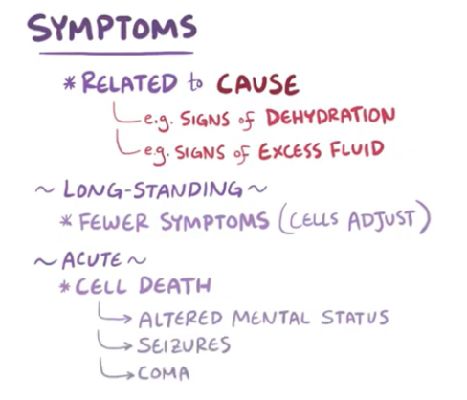 SYMPTOMS
* RELATED to CAUSE
e.g. SIGNS of DEHYDRATION
e.g. SIGNS of EXCESS FLUID
~ LONG-STANDING ~
* FEWER SYMPTOMS (CELLS ADJUST)
~ ACUTE ~
* CELL DEATH
→ ALTERED MENTAL STATUS
→ SEIZURES
→ COMA